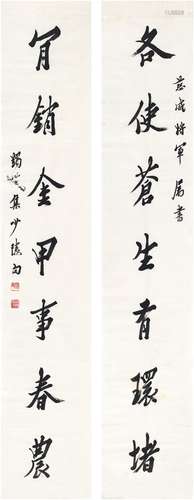 成將軍 屬書
各使蒼生有環堵
肎銷金甲事春農
蠲叟集少陵句